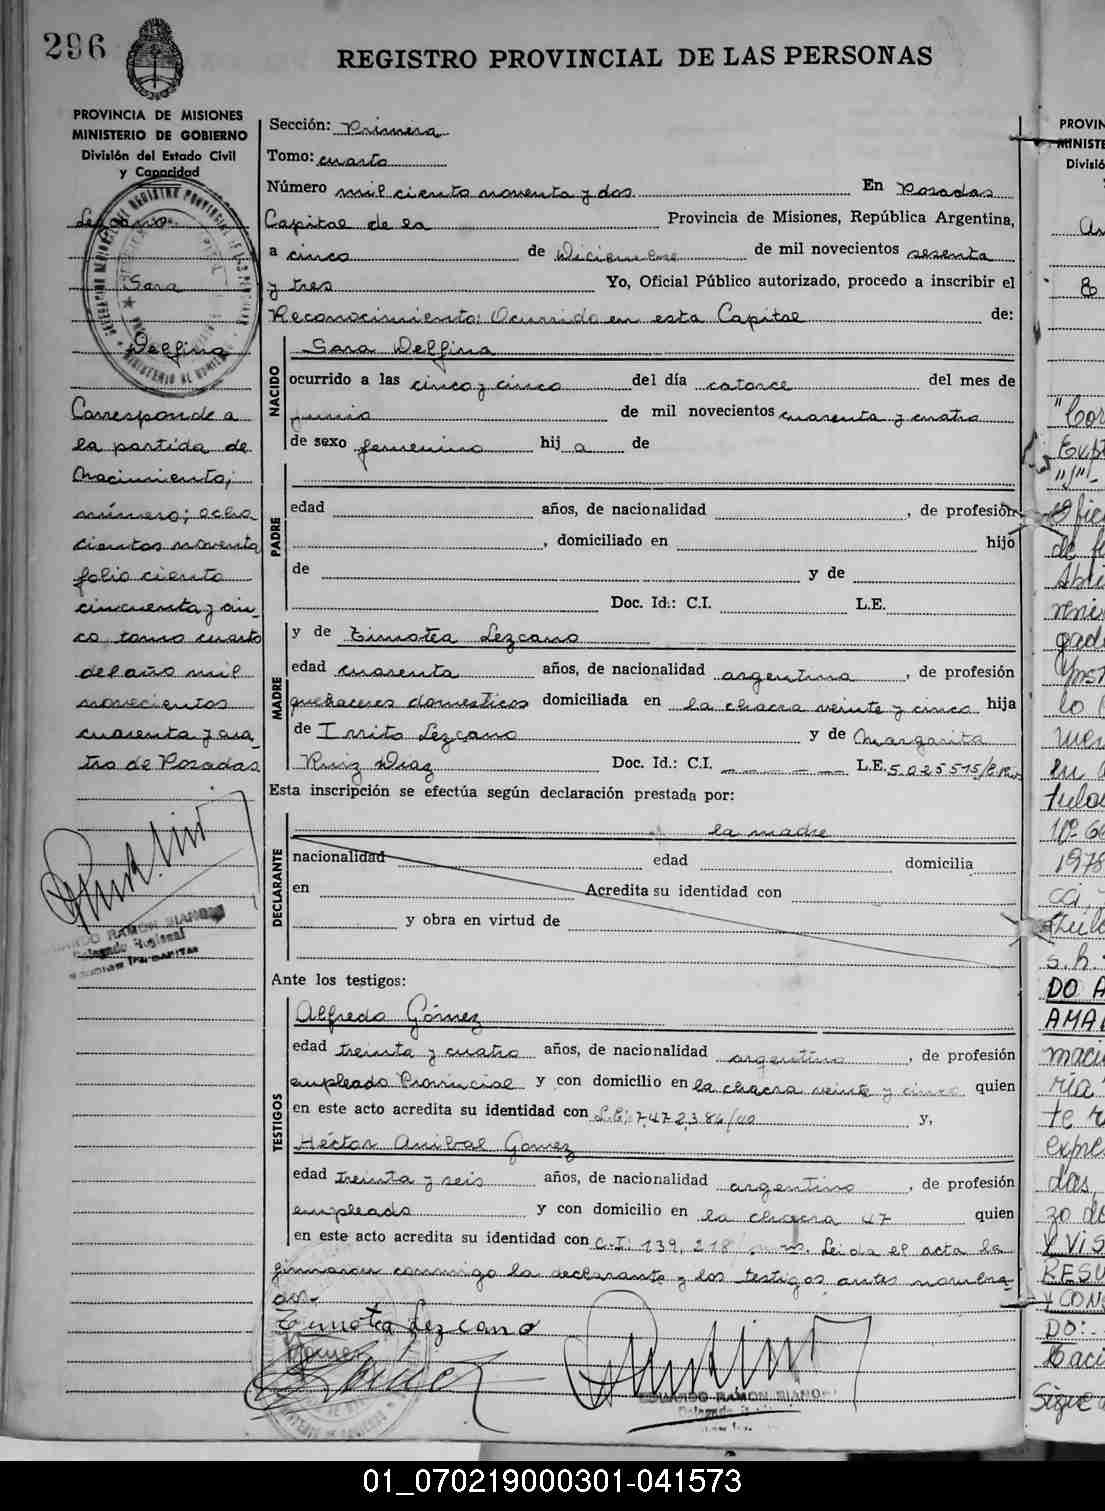 296
REGISTRO PROVINCIAL DE LAS PERSONAS
PROVINCIA DE MISIONES
MINISTERIO DE GOBIERNO
División del Estado Civil
y Capacidad
Lezcano
Sara
Delfina
Corresponde a
la partida de
Nacimiento,
número; ocho
cientos noventa
folio ciento
cincuenta y cin
co tomo cuarto
del año mil
novecientos
cuarenta y cua
tro de Posadas
EDUARDO RAMON BIANCHI
Delegado Regional
Sección: Primera
Tomo: cuarto
Número mil ciento noventa y dos En Posadas
Capital de la Provincia de Misiones, República Argentina,
a cinco de Diciembre de mil novecientos sesenta
y tres Yo, Oficial Público autorizado, procedo a inscribir el
Reconocimiento: Ocurrido en esta Capital de:
NACIDO
Sara Delfina
ocurrido a las cinco y cinco del día catorce del mes de
junio de mil novecientos cuarenta y cuatro
de sexo femenino hij a de
PADRE
edad años, de nacionalidad , de profesión
, domiciliado en hijo
de y de
Doc. Id.: C.I. L.E.
MADRE
y de Timotea Lezcano
edad cuarenta años, de nacionalidad argentina , de profesión
quehaceres domesticos domiciliada en la chacra veinte y cinco hija
de Irrito Lezcano y de Margarita
Ruiz Diaz Doc. Id.: C.I. L.E. 5.025515
Esta inscripción se efectúa según declaración prestada por:
DECLARANTE
la madre
nacionalidad edad domicilia
en Acredita su identidad con
y obra en virtud de
Ante los testigos:
TESTIGOS
Alfredo Gómez
edad treinta y cuatro años, de nacionalidad argentino , de profesión
empleado Provincial y con domicilio en la chacra veinte y cinco quien
en este acto acredita su identidad con L.E. 7,472,384 y,
Héctor Anibal Gomez
edad treinta y seis años, de nacionalidad argentino , de profesión
empleado y con domicilio en la chacra 47 quien
en este acto acredita su identidad con C.I: 139,218 Leida el acta la
firmaron conmigo la declarante y los testigos antes nombra
dos.-
Timotea Lezcano
Gomez
EDUARDO RAMON BIANCHI
Delegado
PROVIN
MINISTE
Divisió
8
"Cor
DO A
AMA
te r
expre
das,
zo de
Y VIS
RESU
Y CON
DO:
Sigue a
01_070219000301-041573